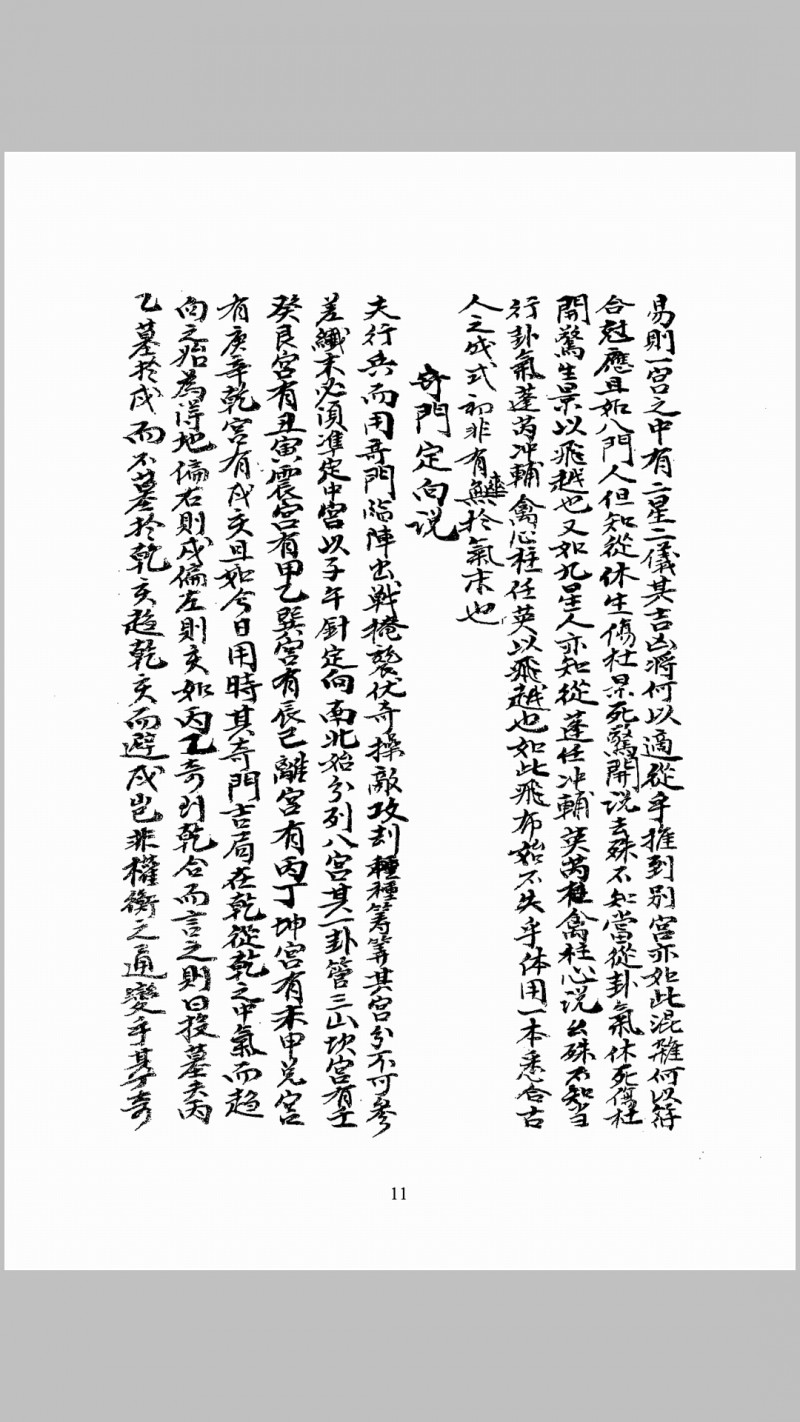 易則一宮之中有二星二儀其吉凶將何以適從乎推到別宮亦如此混雜何以符
合尅應且如八門人但知從休生傷杜景死驚開說去殊不知當從卦氣休死傷杜
開驚生景以飛越也又如九星人亦知從蓬任冲輔英芮禽柱心說去殊不知当
行卦氣蓬芮冲輔禽心柱任英以飛越也如此飛布始不失乎体用一本悉合古
人之成式初非有於氣末也
奇門定向說
夫行兵而用奇門臨陣出戰掩襲伏奇操敵攻刦種種筹筭其宮分不可參
差纖末必須凖定中宮以子午針定向南北始分列八宮其一卦管三山坎宮有壬
癸艮宮有丑寅震宮有甲乙巽宮有辰巳離宮有丙丁坤宮有未申兑宮
有庚辛乾宮有戌亥且如今日用時其奇門吉局在乾從乾之中氣而趨
向之始為得地偏右則戌偏左則亥如丙乙奇到乾合而言之則曰投墓夫丙
乙墓於戌而不墓於乾亥趋乾亥而避戌豈非權衡之通變乎其奇
11